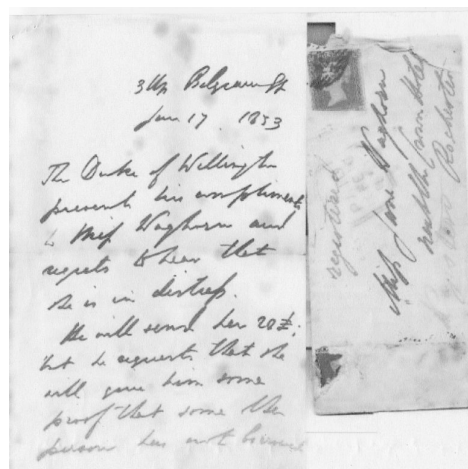 3 Up Belgrave St
Jan 17 1853
The Duke of Wellington
presents his compliments
to Miss Waghorn and
regrets to hear that
she is in distress.
He will send her 20£;
but he requests that she
will give him some
proof that some other
person has not
registered
Miss Jane Waghorn
near the
Rochester